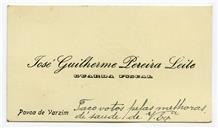 José Guilherme Pereira Leite
GUARDA FISCAL
Faço votos pelas melhoras
Povoa de Varzim
de saude de V. Exª